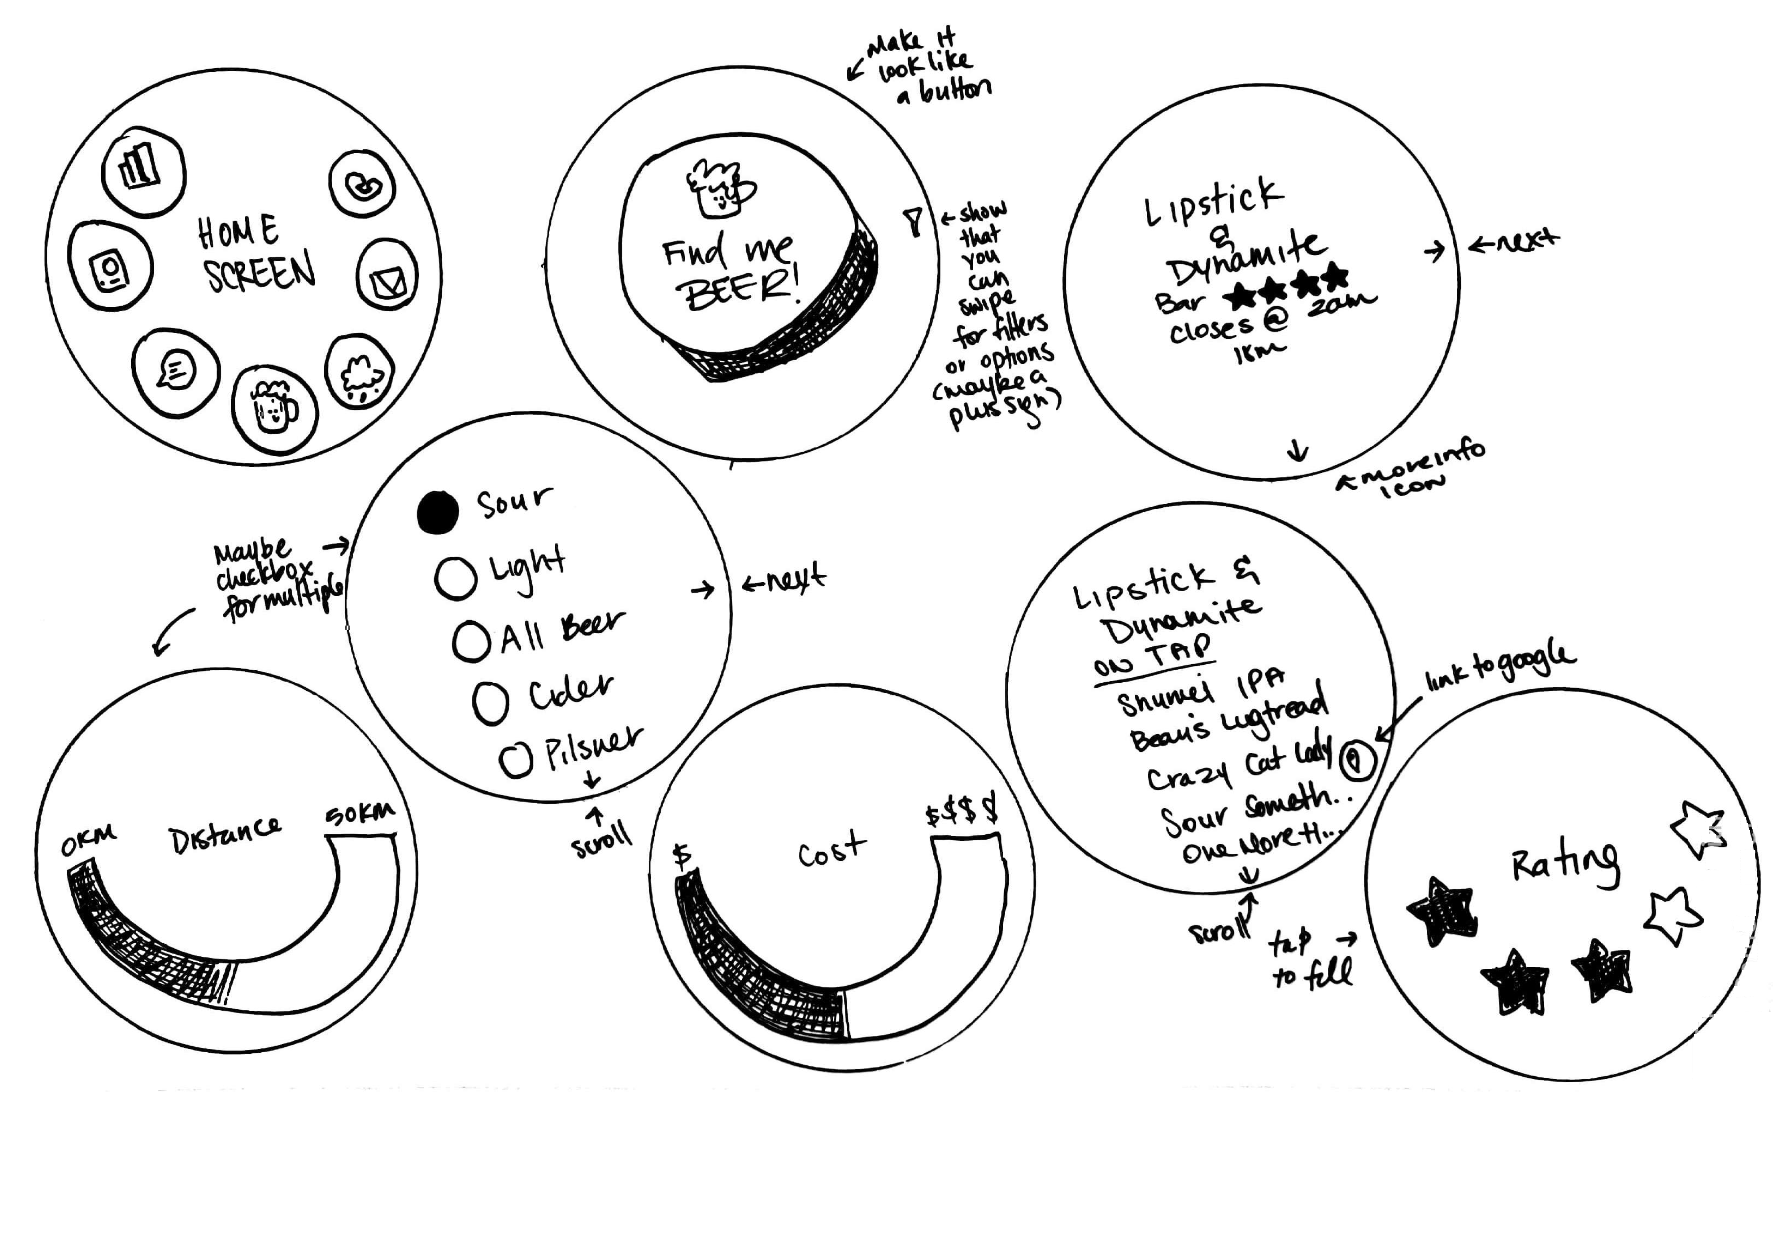 HOME
SCREEN
Make it
look like
a button
Find me
BEER!
←show
that
you
can
swipe
for filters
or options
(maybe a
plus sign)
Lipstick
&
Dynamite
Bar ★★★★
closes @ 2am
1km
→ ←next
↓
←more info
icon
Maybe →
checkbox
for multiple
Sour
Light
All Beer
Cider
Pilsner
→ ←next
↓
↑
scroll
0KM
Distance
50KM
$
Cost
$$$$
Lipstick &
Dynamite
ON TAP
IPA
Beau's Lugtread
Crazy Cat Lady
Sour Someth..
One More th...
link to google
↓
↑
scroll
tap →
to fill
Rating